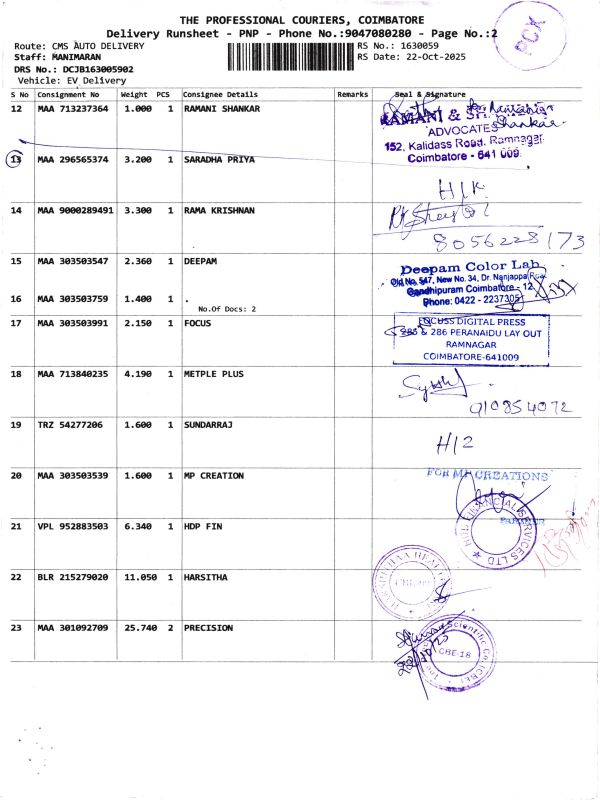 THE PROFESSIONAL COURIERS, COIMBATORE
Delivery Runsheet - PNP - Phone No.:9047080280 - Page No.:2
PCX
Route: CMS AUTO DELIVERY
RS No.: 1630059
Staff: MANIMARAN
RS Date: 22-Oct-2025
DRS No.: DCJB163005902
Vehicle: EV Delivery
S No Consignment No Weight PCS Consignee Details Remarks Seal & Signature
12 MAA 713237364 1.000 1 RAMANI SHANKAR
RAMANI &
ADVOCATES
Shankar
152, Kalidass Road, Ramnagar
Coimbatore - 641 009
13 MAA 296565374 3.200 1 SARADHA PRIYA
H/K
14 MAA 9000289491 3.300 1 RAMA KRISHNAN
8056228173
15 MAA 303503547 2.360 1 DEEPAM
Deepam Color Lab
Old No. 547, New No. 34, Dr. Nanjappa Road
Gandhipuram Coimbatore - 12
Phone: 0422 - 2237305
16 MAA 303503759 1.400 1 .
No.Of Docs: 2
17 MAA 303503991 2.150 1 FOCUS
FOCUSS DIGITAL PRESS
285 & 286 PERANAIDU LAY OUT
RAMNAGAR
COIMBATORE-641009
18 MAA 713840235 4.190 1 METPLE PLUS
910854072
19 TRZ 54277206 1.600 1 SUNDARRAJ
H/2
20 MAA 303503539 1.600 1 MP CREATION
FOR MP CREATIONS
PARTNER
21 VPL 952883503 6.340 1 HDP FIN
FINANCIAL SERVICES LTD
22 BLR 215279020 11.050 1 HARSITHA
23 MAA 301092709 25.740 2 PRECISION
Scientific Co. (CBE)
CBE-18